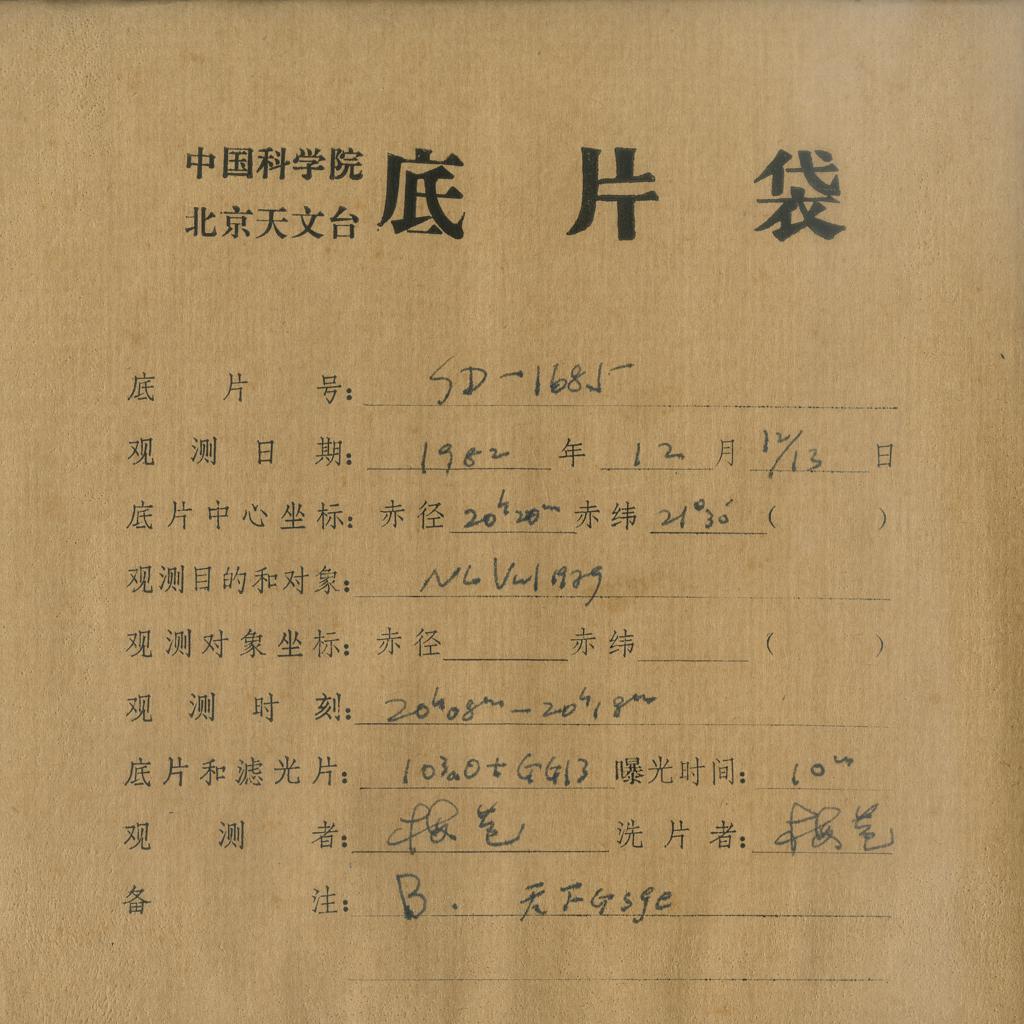 中国科学院
北京天文台 底片袋
底片号: SD-1685
观测日期: 1982年12月12/13日
底片中心坐标: 赤径 20h20m 赤纬 21°30′ ( )
观测目的和对象:
观测对象坐标: 赤径 赤纬 ( )
观测时刻: 20h08m-20h18m
底片和滤光片: 103aO+GG13 曝光时间: 10m
观测者: 梅苞 洗片者: 梅苞
备注: B.